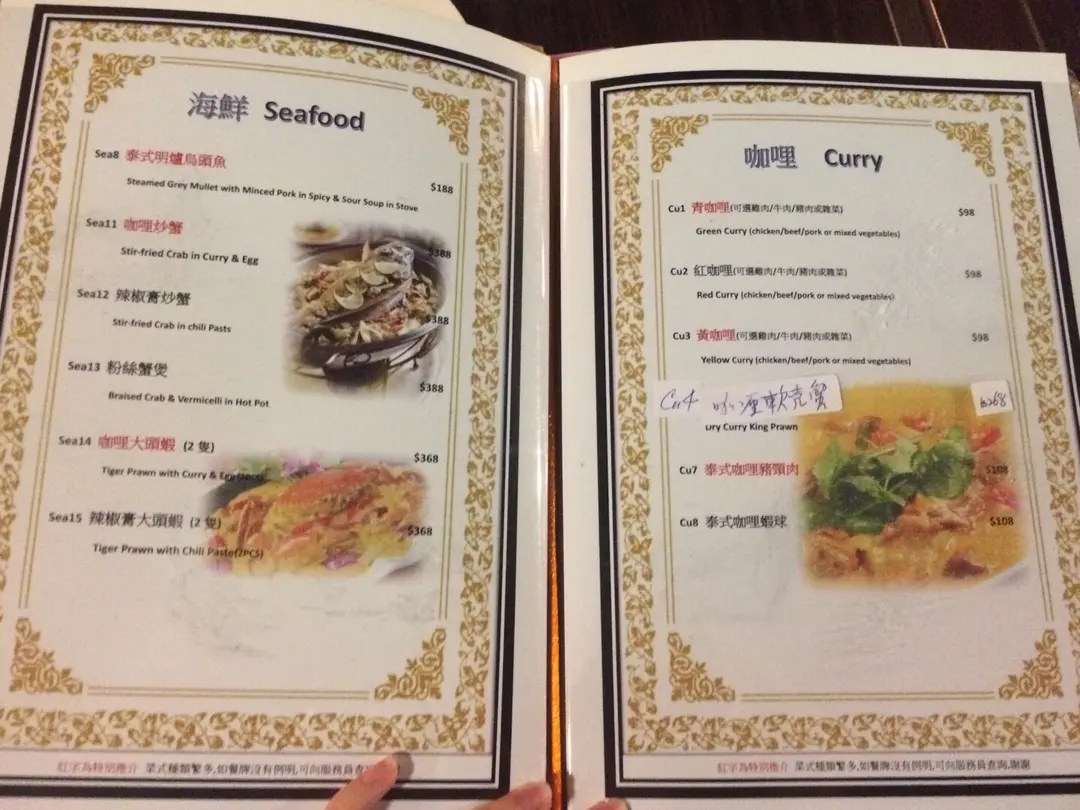 海鮮 Seafood
Sea8 泰式明爐烏頭魚
$188
Steamed Grey Mullet with Minced Pork in Spicy & Sour Soup in Stove
Sea11 咖哩炒蟹
$388
Stir-fried Crab in Curry & Egg
Sea12 辣椒膏炒蟹
$388
Stir-fried Crab in chili Pasts
Sea13 粉絲蟹煲
$388
Braised Crab & Vermicelli in Hot Pot
Sea14 咖哩大頭蝦 (2 隻)
$368
Tiger Prawn with Curry & Egg(2PCS)
Sea15 辣椒膏大頭蝦 (2 隻)
$368
Tiger Prawn with Chili Paste(2PCS)
紅字為特別推介 菜式種類繁多,如餐牌沒有例明,可向服務員查
咖哩 Curry
Cu1 青咖哩(可選雞肉/牛肉/豬肉或雜菜) $98
Green Curry (chicken/beef/pork or mixed vegetables)
Cu2 紅咖哩(可選雞肉/牛肉/豬肉或雜菜) $98
Red Curry (chicken/beef/pork or mixed vegetables)
Cu3 黃咖哩(可選雞肉/牛肉/豬肉或雜菜) $98
Yellow Curry (chicken/beef/pork or mixed vegetables)
Cu4 咖喱軟壳蟹 $268
Dry Curry King Prawn
Cu7 泰式咖哩豬頸肉 $108
Cu8 泰式咖哩蝦球 $108
紅字為特別推介 菜式種類繁多,如餐牌沒有例明,可向服務員查詢,謝謝